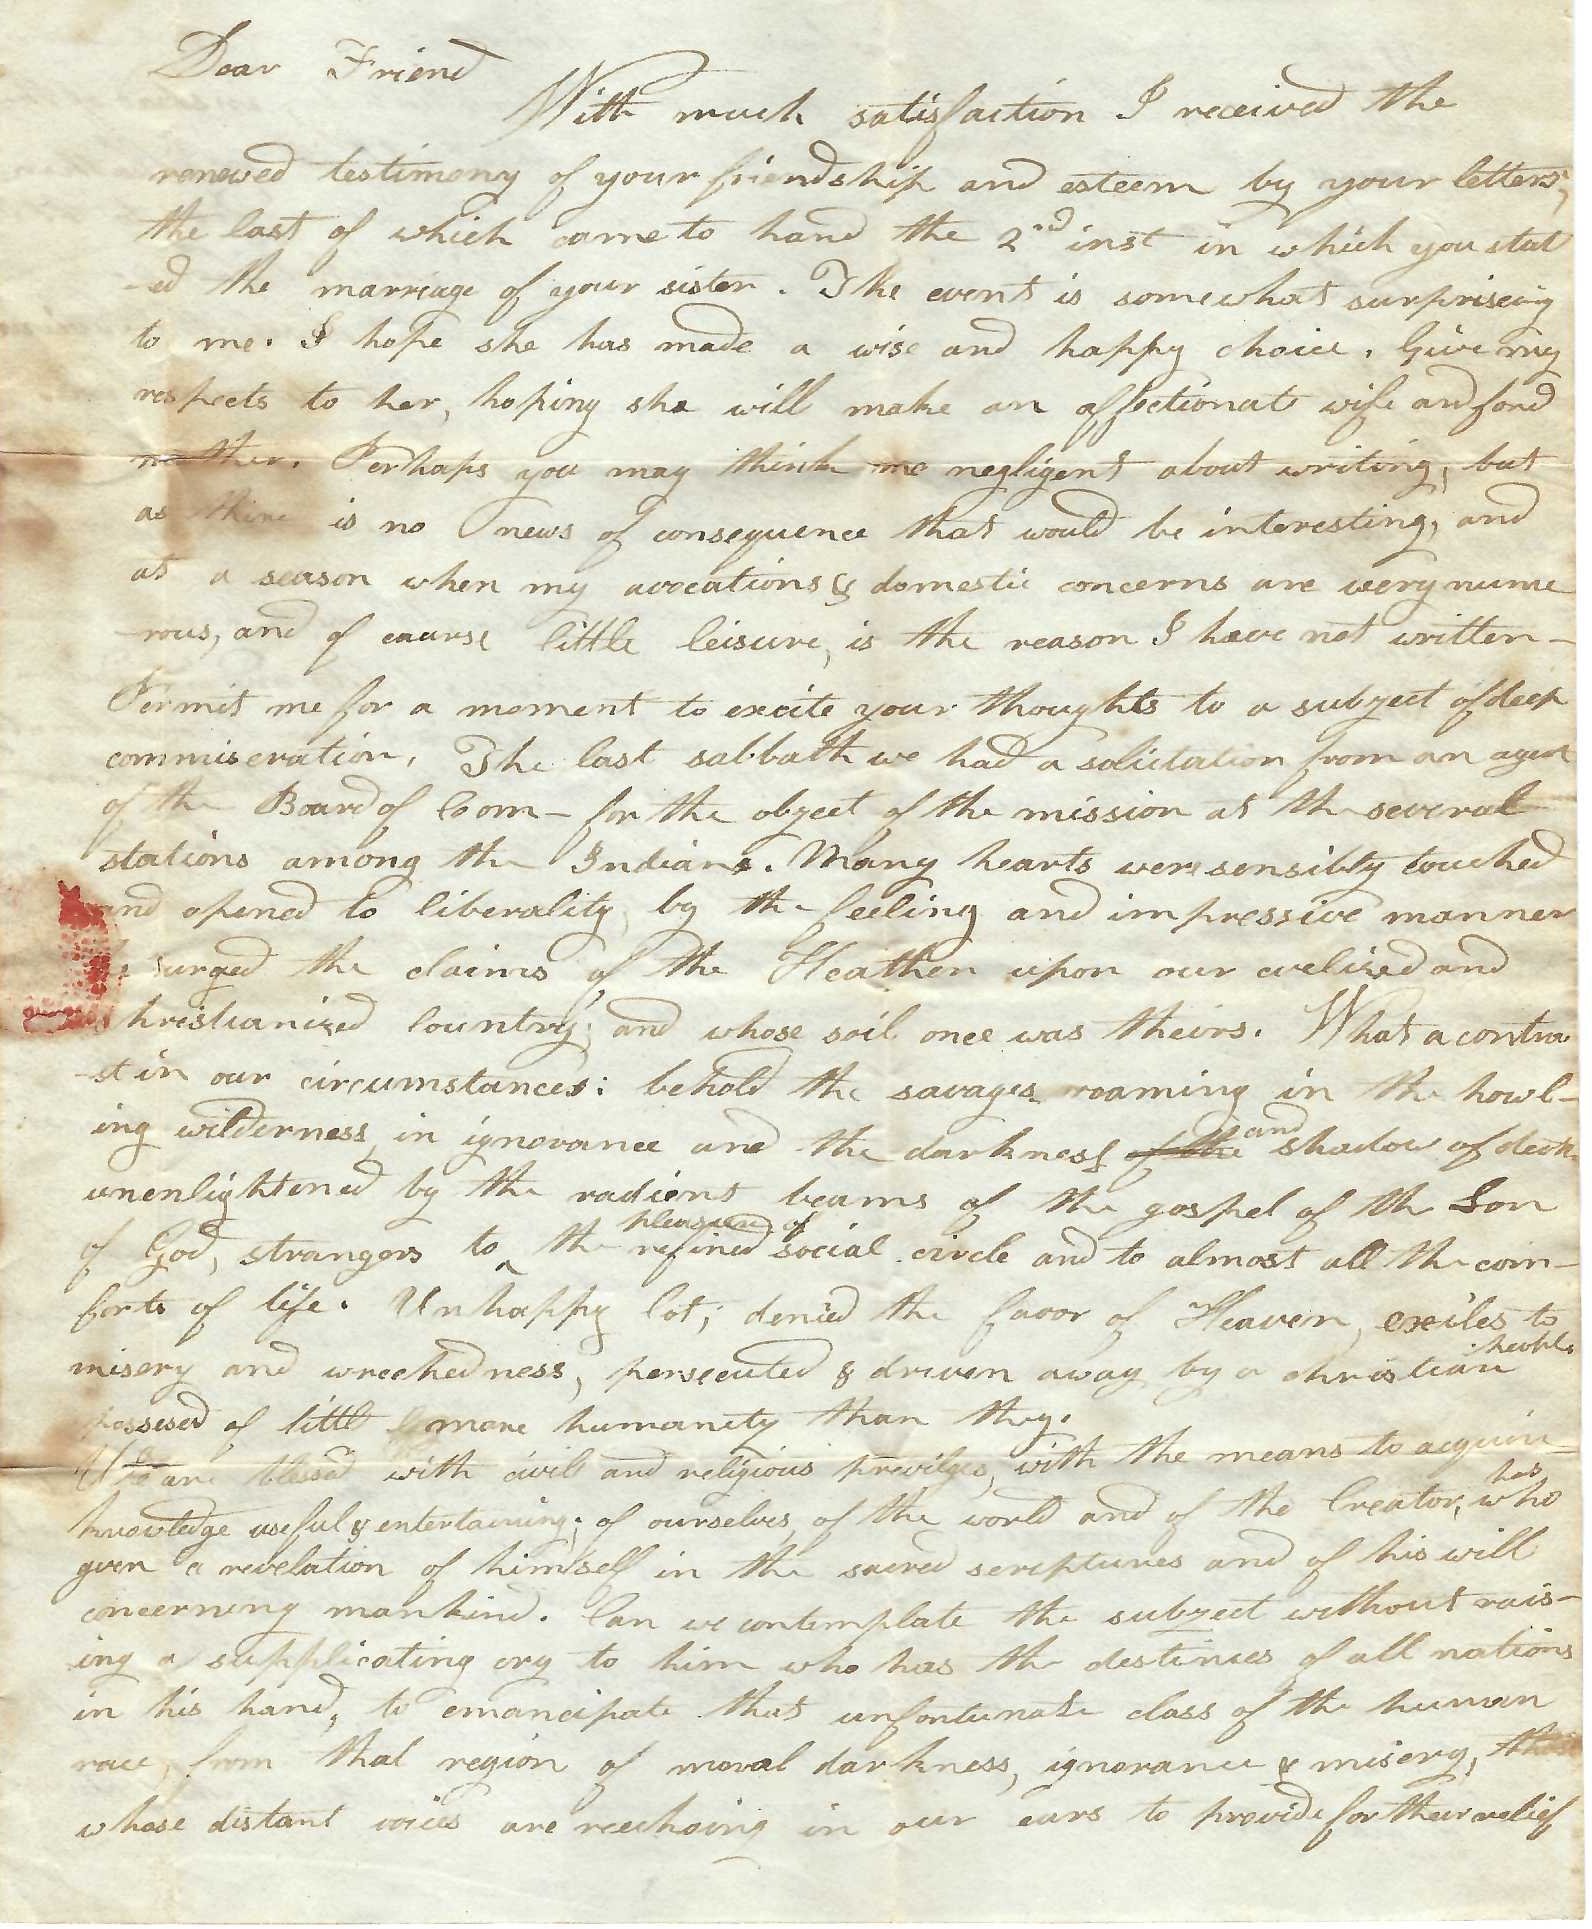 Dear Friend
With much satisfaction I received the
renewed testimony of your friendship and esteem by your letters,
the last of which came to hand the 2nd inst in which you stat
-ed the marriage of your sister. The event is somewhat surpriseing
to me. I hope she has made a wise and happy choice. Give my
respects to her, hoping she will make an affectionate wife and fond
mother. Perhaps you may think me negligent about writing, but
as there is no news of consequence that would be interesting, and
at a season when my avocations & domestic concerns are very nume
-rous, and of course little leisure, is the reason I have not written -
Permit me for a moment to excite your thoughts to a subject of deep
commiseration. The last sabbath we had a solicitation from an agent
of the Board of Com - for the object of the mission at the several
stations among the Indians. Many hearts were sensibly touched
and opened to liberality by the feeling and impressive manner
he urged the claims of the Heathen upon our civelized and
hristianized Country; and whose soil once was theirs. What a contra
-st in our circumstances: behold the savages roaming in the howl-
ing wilderness, in ignorance and the darkness of the and shadow of death
unenlightened by the radient beams of the gospel of the Son
of God, strangers to the pleasures of refined social circle and to almost all the com-
forts of life. Unhappy lot; denied the favor of Heaven, exiles to
misery and wrechedness, persecuted & driven away by a christian people
possesed of little more humanity than they.
We are blessed with civil and religious previlges, with the means to acquire
knowledge useful & entertaining; of ourselves, of the world and of the Creator, who has
given a revelation of himself in the sacred scriptures and of his will
concerning mankind. Can we contemplate the subject without rais-
ing a supplicating cry to him who has the destinies of all nations
in his hand, to emancipate that unfortunate class of the human
race, from that region of moral darkness, ignorance & misery,
whose distant voices are reechoing in our ears to provide for their relief